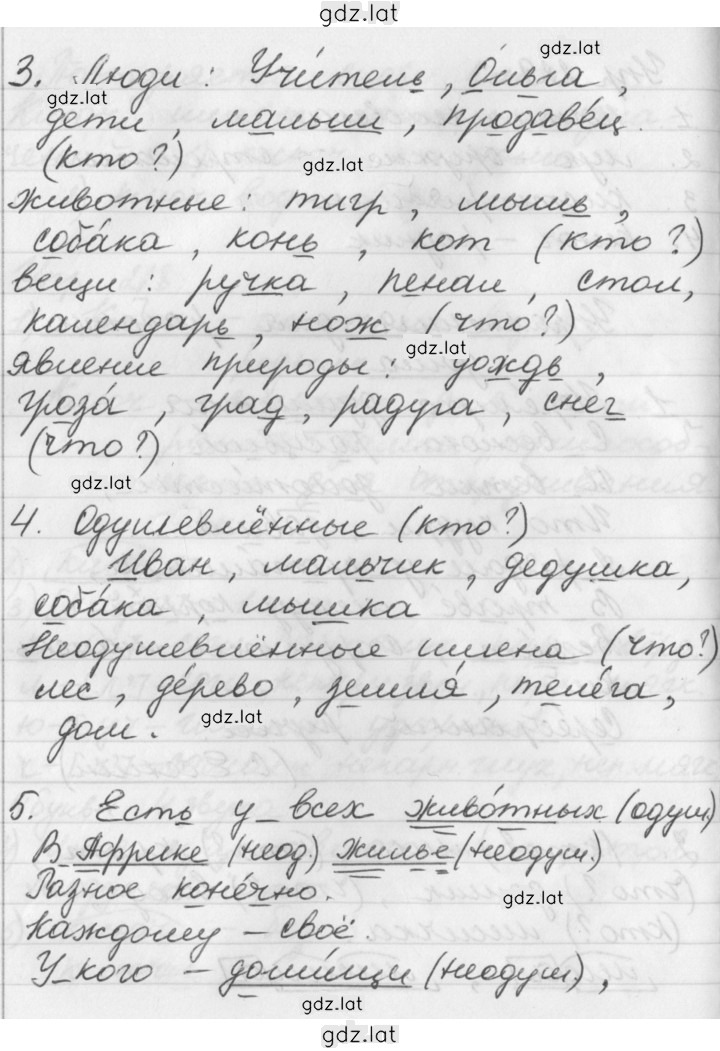 gdz.lat
gdz.lat
3. Люди: Учи́тель, О́льга,
gdz.lat
дети, малыши, продаве́ц.
(кто?)
gdz.lat
животные: тигр, мышь,
соба́ка, конь, кот (кто?)
вещи: ручка, пенал, стол,
календарь, нож (что?)
gdz.lat
явление природы: дождь,
гроза́, град, радуга, снег
(что?)
gdz.lat
4. Одушевлённые (кто?)
Иван, мальчик, дедушка,
соба́ка, мышка
Неодушевлённые имена (что?)
лес, де́рево, земля́, теле́га,
gdz.lat
дом.
5. Есть у всех живо́тных (одуш.)
В Африке (неод.) жильё (неодуш.)
Разное коне́чно.
gdz.lat
Каждому – своё.
У кого – доми́щи (неодуш.),
gdz.lat
gdz.lat